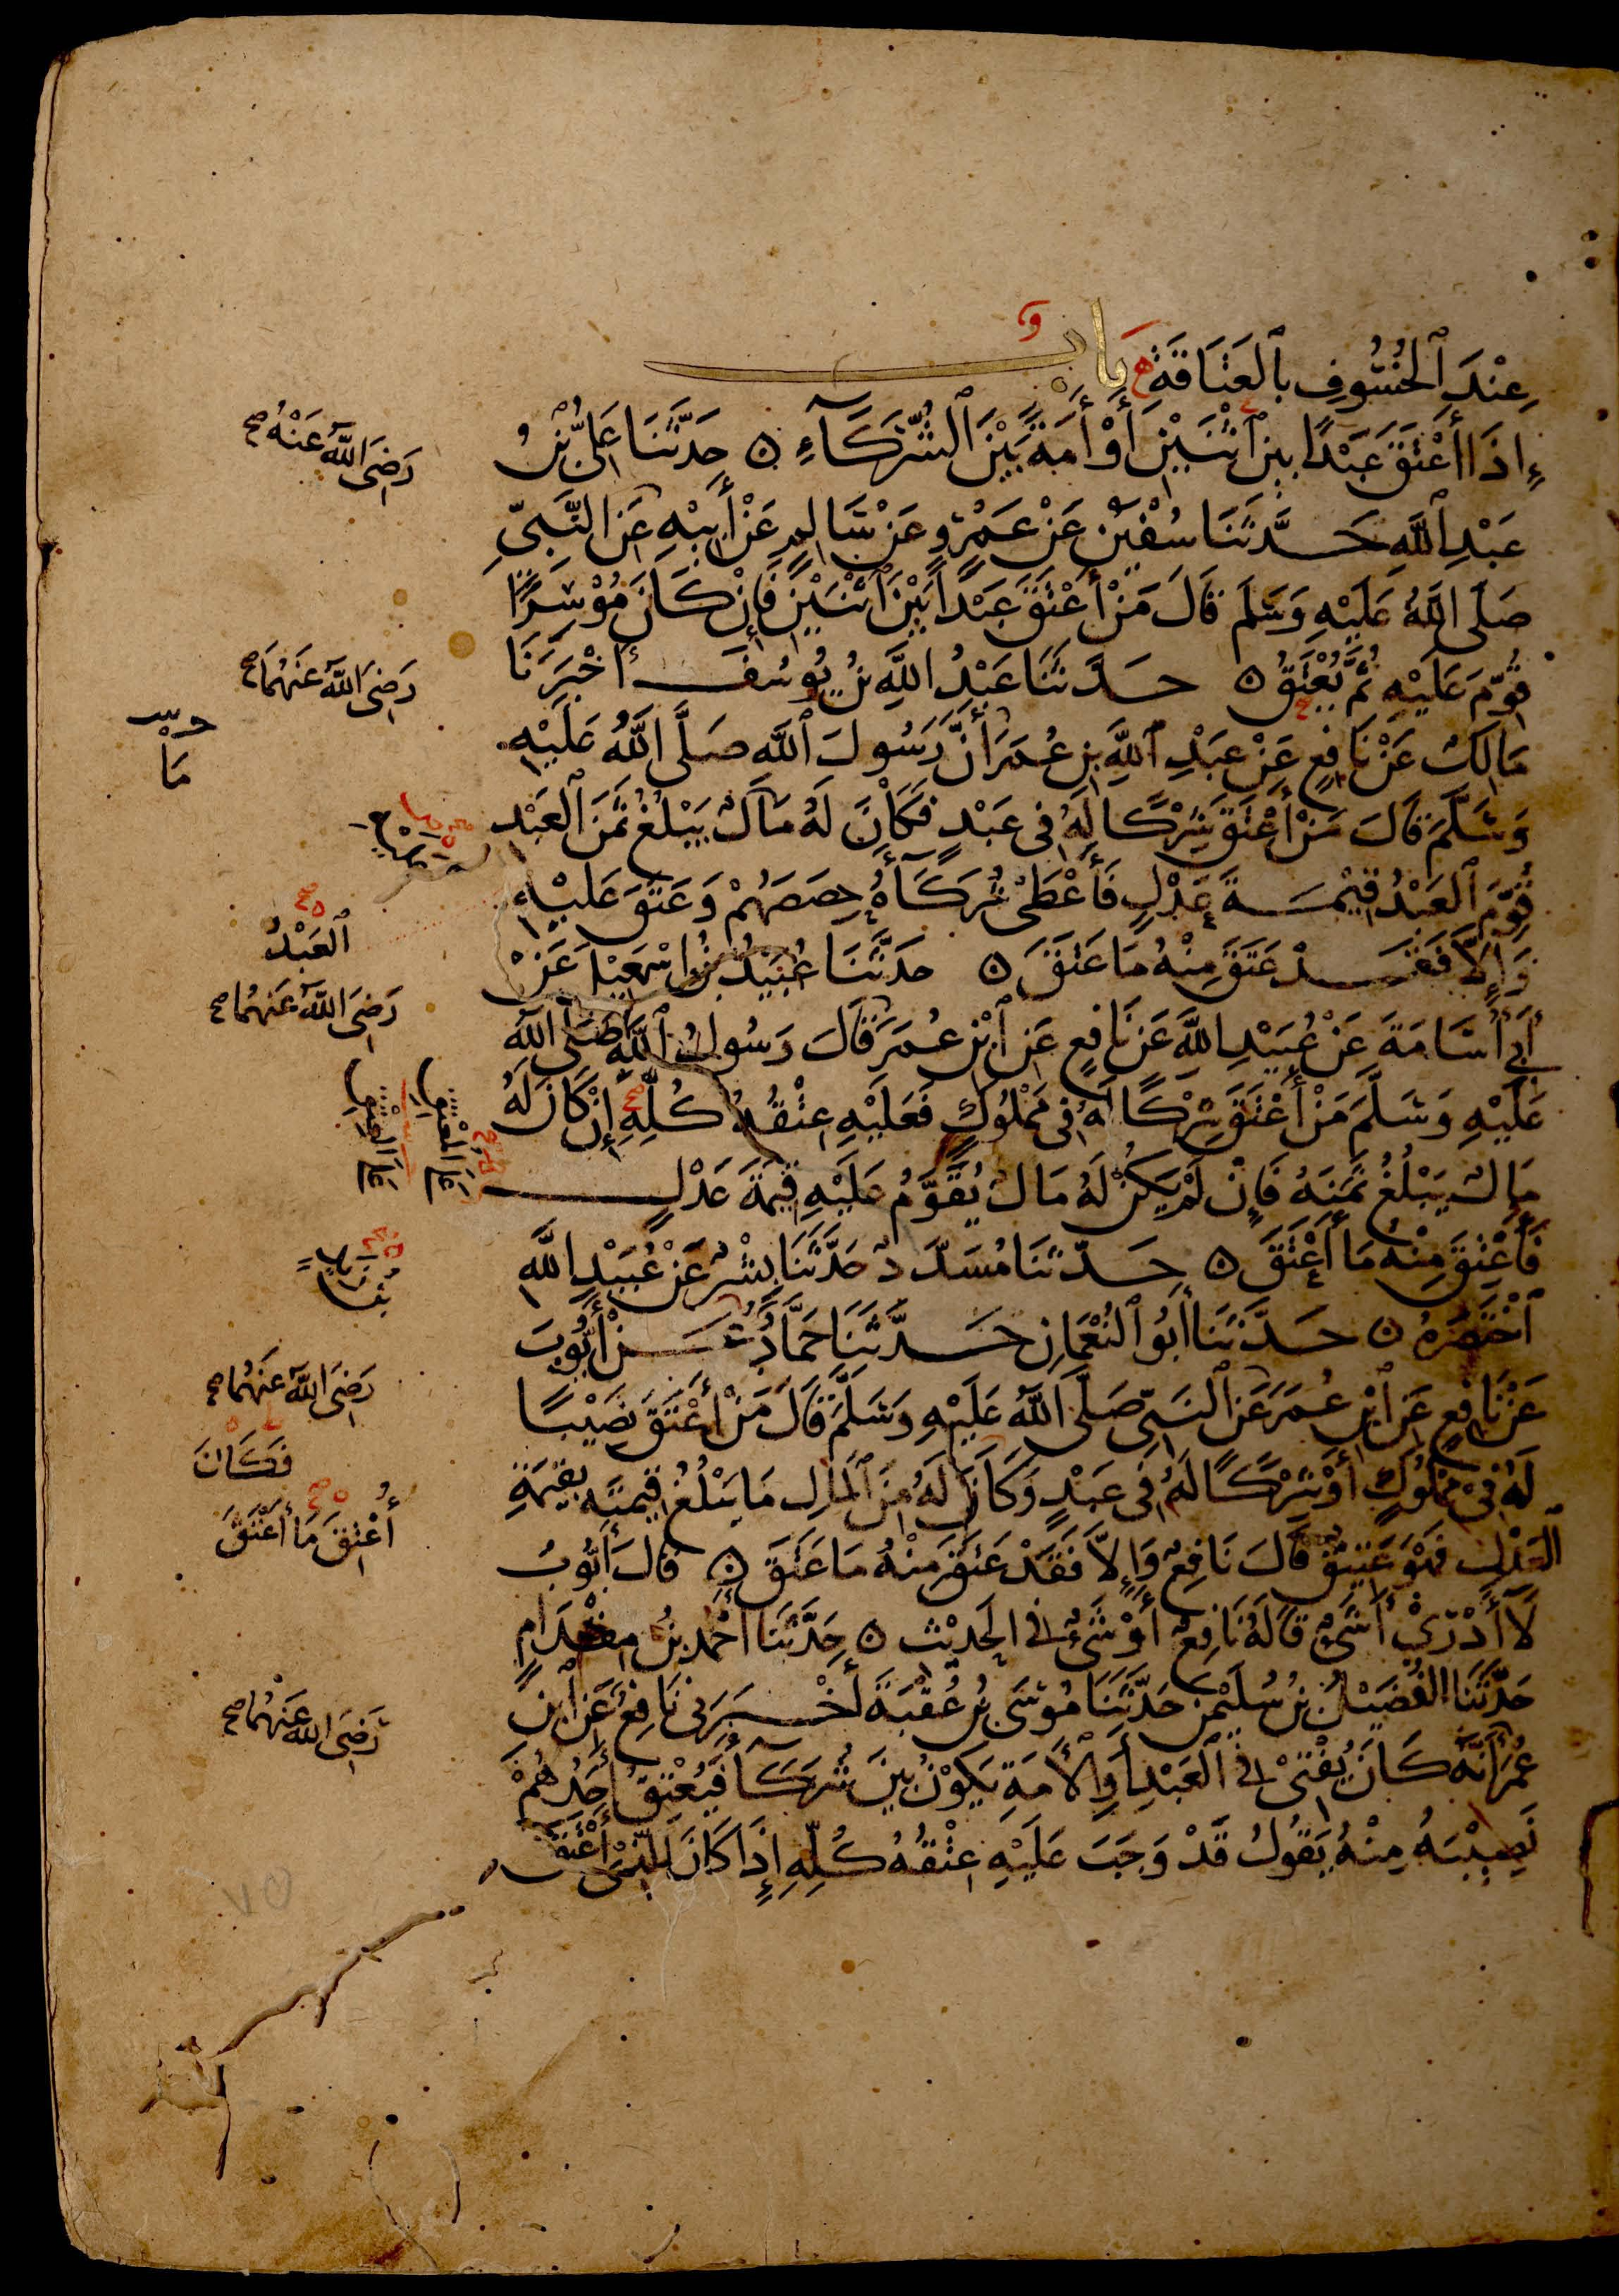 عِنْدَ ٱلْخُسُوفِ بِٱلْعَتَاقَةِ بَاب
إِذَا أَعْتَقَ عَبْدًا بَيْنَ ٱثْنَيْنِ أَوْ أَمَةً بَيْنَ ٱلشُّرَكَآءِ ٥ حَدَّثَنَا عَلِيُّ بْنُ
عَبْدِ ٱللَّهِ حَدَّثَنَا سُفْيٰنُ عَنْ عَمْرٍو عَنْ سَالِمٍ عَنْ أَبِيْهِ عَنِ النَّبِيِّ
صَلَّى اللَّهُ عَلَيْهِ وَسَلَّمَ قَالَ مَنْ أَعْتَقَ عَبْدًا بَيْنَ ٱثْنَيْنِ فَإِنْ كَانَ مُوْسِرًا
قُوِّمَ عَلَيْهِ ثُمَّ يُعْتَقُ ٥ حَدَّثَنَا عَبْدُ اللَّهِ بْنُ يُوسُفَ أَخْبَرَنَا
مَالِكٌ عَنْ نَافِعٍ عَنْ عَبْدِ ٱللَّهِ بْنِ عُمَرَ أَنَّ رَسُولَ ٱللَّهِ صَلَّى اللَّهُ عَلَيْهِ
وَسَلَّمَ قَالَ مَنْ أَعْتَقَ شِرْكًا لَهُ فِى عَبْدٍ فَكَانَ لَهُ مَالٌ يَبْلُغُ ثَمَنَ ٱلْعَبْدِ
قُوِّمَ ٱلْعَبْدُ قِيْمَةَ عَدْلٍ فَأَعْطَى شُرَكَآءَهُ حِصَصَهُمْ وَعَتَقَ عَلَيْهِ
وَإِلَّا فَقَدْ عَتَقَ مِنْهُ مَا عَتَقَ ٥ حَدَّثَنَا عُبَيْدُ بْنُ إِسْمٰعِيْلَ عَنْ
أَبِي أُسَامَةَ عَنْ عُبَيْدِ اللَّهِ عَنْ نَافِعٍ عَنِ ٱبْنِ عُمَرَ قَالَ قَالَ رَسُولُ ٱللَّهِ صَلَّى اللَّهُ
عَلَيْهِ وَسَلَّمَ مَنْ أَعْتَقَ شِرْكًا لَهُ فِى مَمْلُوكٍ فَعَلَيْهِ عِتْقُهُ كُلِّهِ إِنْ كَانَ لَهُ
مَالٌ يَبْلُغُ ثَمَنَهُ فَإِنْ لَمْ يَكُنْ لَهُ مَالٌ يُقَوَّمُ عَلَيْهِ قِيْمَةَ عَدْلٍ
فَأُعْتِقَ مِنْهُ مَا أَعْتَقَ ٥ حَدَّثَنَا مُسَدَّدٌ حَدَّثَنَا بِشْرٌ عَنْ عُبَيْدِ اللَّهِ
ٱخْتَصَرَهُ ٥ حَدَّثَنَا أَبُو ٱلنُّعْمَانِ حَدَّثَنَا حَمَّادٌ عَنْ أَيُّوبَ
عَنْ نَافِعٍ عَنِ ٱبْنِ عُمَرَ عَنِ ٱلنَّبِيِّ صَلَّى اللَّهُ عَلَيْهِ وَسَلَّمَ قَالَ مَنْ أَعْتَقَ نَصِيْبًا
لَهُ فِىْ مَمْلُوكٍ أَوْ شِرْكًا لَهُ فِى عَبْدٍ وَكَانَ لَهُ مِنَ ٱلْمَالِ مَا يَبْلُغُ قِيمَتَهُ بِقِيْمَةِ
ٱلْعَدْلِ فَهْوَ عَتِيْقٌ قَالَ نَافِعٌ وَإِلَّا فَقَدْ عَتَقَ مِنْهُ مَا عَتَقَ ٥ قَالَ أَيُّوبُ
لَا أَدْرِيْ أَشَىْءٌ قَالَهُ نَافِعٌ أَوْ شَىْءٌ فِى الْحَدِيْثِ ٥ حَدَّثَنَا أَحْمَدُ بْنُ مِقْدَامٍ
حَدَّثَنَا الْفُضَيْلُ بْنُ سُلَيْمٰنَ حَدَّثَنَا مُوْسَى بْنُ عُقْبَةَ أَخْبَرَنِى نَافِعٌ عَنِ ٱبْنِ
عُمَرَ أَنَّهُ كَانَ يُفْتِىْ فِى ٱلْعَبْدِ أَوِ ٱلْأَمَةِ يَكُوْنُ بَيْنَ شُرَكَآءَ فَيُعْتِقُ أَحَدُهُمْ
نَصِيْبَهُ مِنْهُ يَقُولُ قَدْ وَجَبَ عَلَيْهِ عِتْقُهُ كُلِّهِ إِذَا كَانَ لِلَّذِىْ أَعْتَقَ
رَضِىَ اللَّهُ عَنْهُ
رَضِىَ اللَّهُ عَنْهُمَا
مَا
ٱلْعَبْدُ
رَضِىَ اللَّهُ عَنْهُمَا
عَلَى الْمُعْتِقِ
رَضِىَ اللَّهُ عَنْهُمَا
فَكَانَ
أُعْتِقَ مَا أَعْتَقَ
رَضِىَ اللَّهُ عَنْهُمَا
٧٥